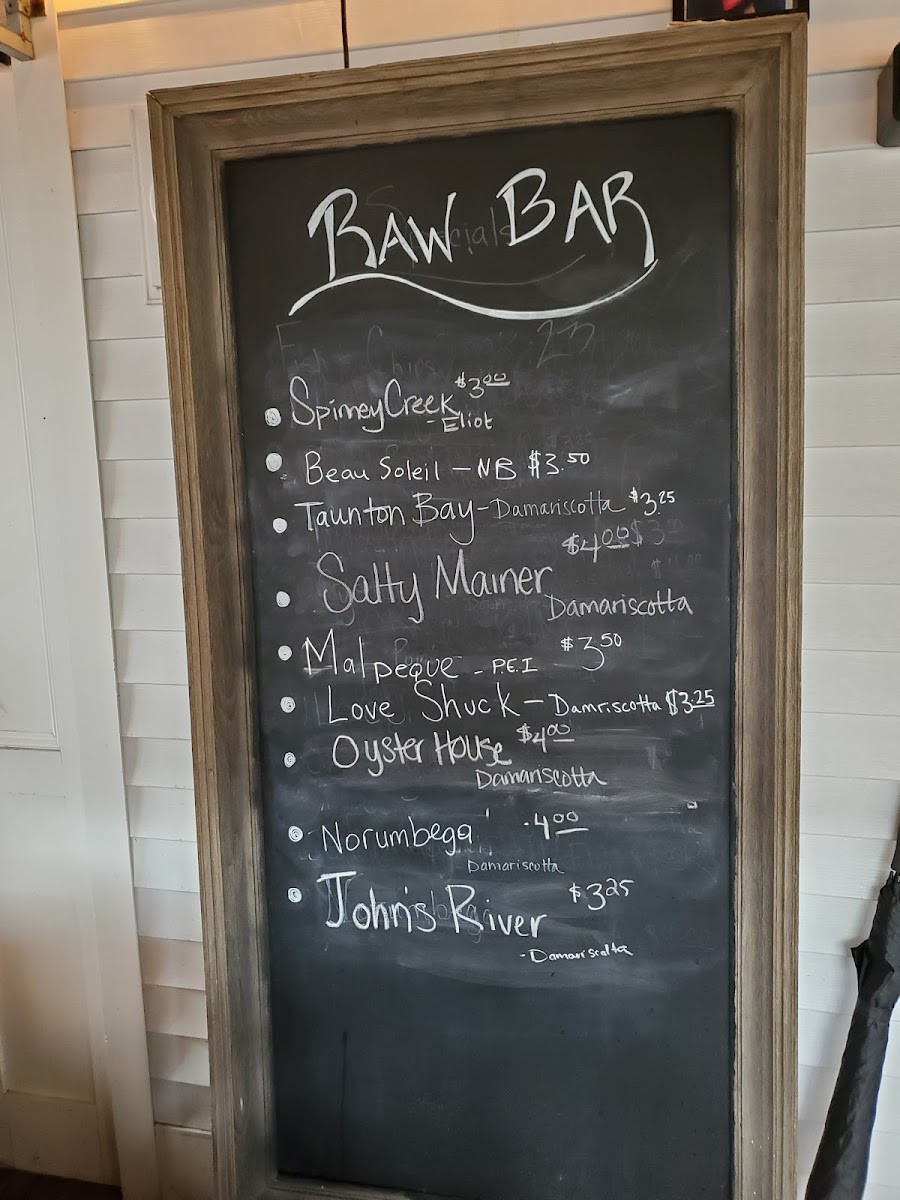 RAW BAR
SpinneyCreek $3.00
- Eliot
Beau Soleil - NB $3.50
Taunton Bay - Damariscotta $3.25
$4.00
Salty Mainer
Damariscotta
Malpeque - P.E.I $3.50
Love Shuck - Damriscotta $3.25
Oyster House $4.00
Damariscotta
Norumbega · 4.00
Damariscotta
John's River $3.25
- Damariscotta